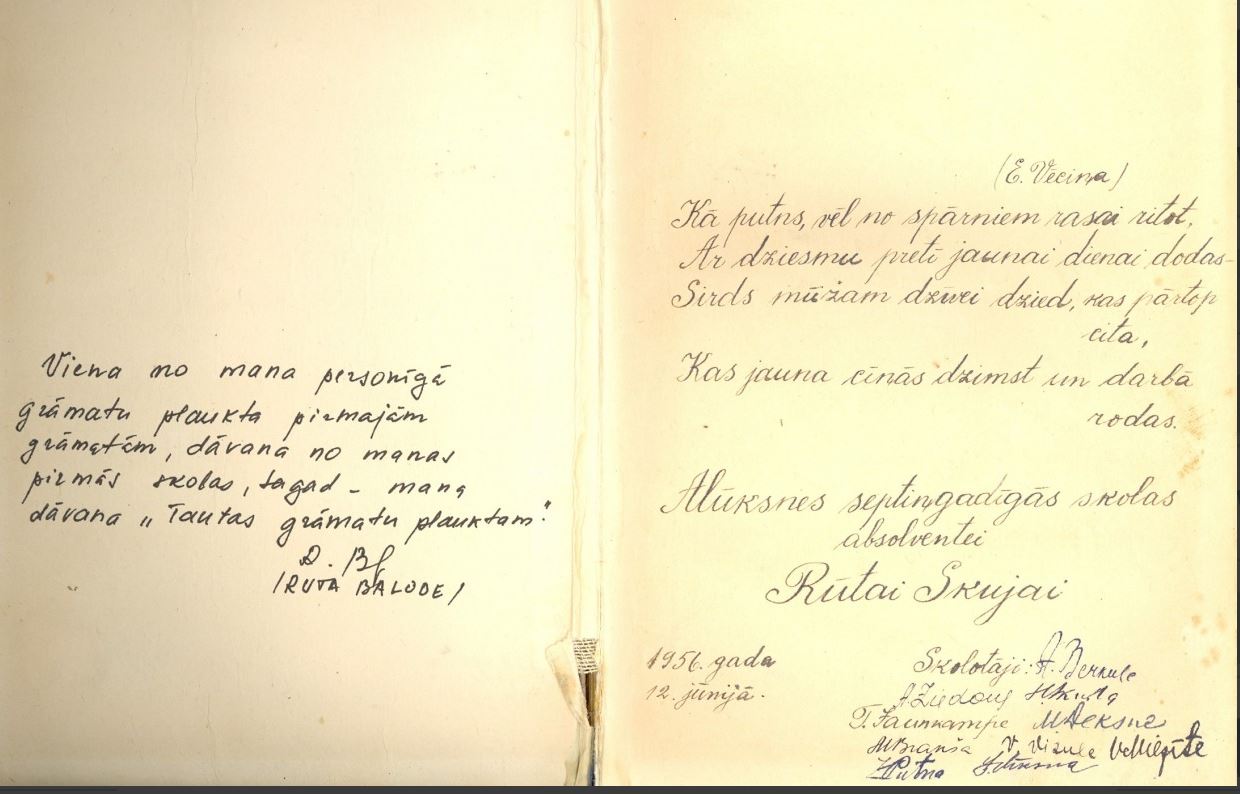 Viena no mana personīgā
grāmatu plaukta pirmajām
grāmatām, dāvana no manas
pirmās skolas, tagad - mana
dāvana „Tautas grāmatu plauktam."
/RUTA BALODE/
(E. Vēciņa)
Kā putns, vēl no spārniem rasai ritot,
Ar dziesmu pretī jaunai dienai dodas-
Sirds mūžam dzīvei dzied, kas pārtop
citā,
Kas jauna cīņās dzimst un darbā
rodas.
Alūksnes septiņgadīgās skolas
absolventei
Rūtai Skujai
1956. gada
12. jūnijā.
Skolotāji: A. Berkule
A Ziedoņs
T. Jaunkampe
V. Vizule
Putna